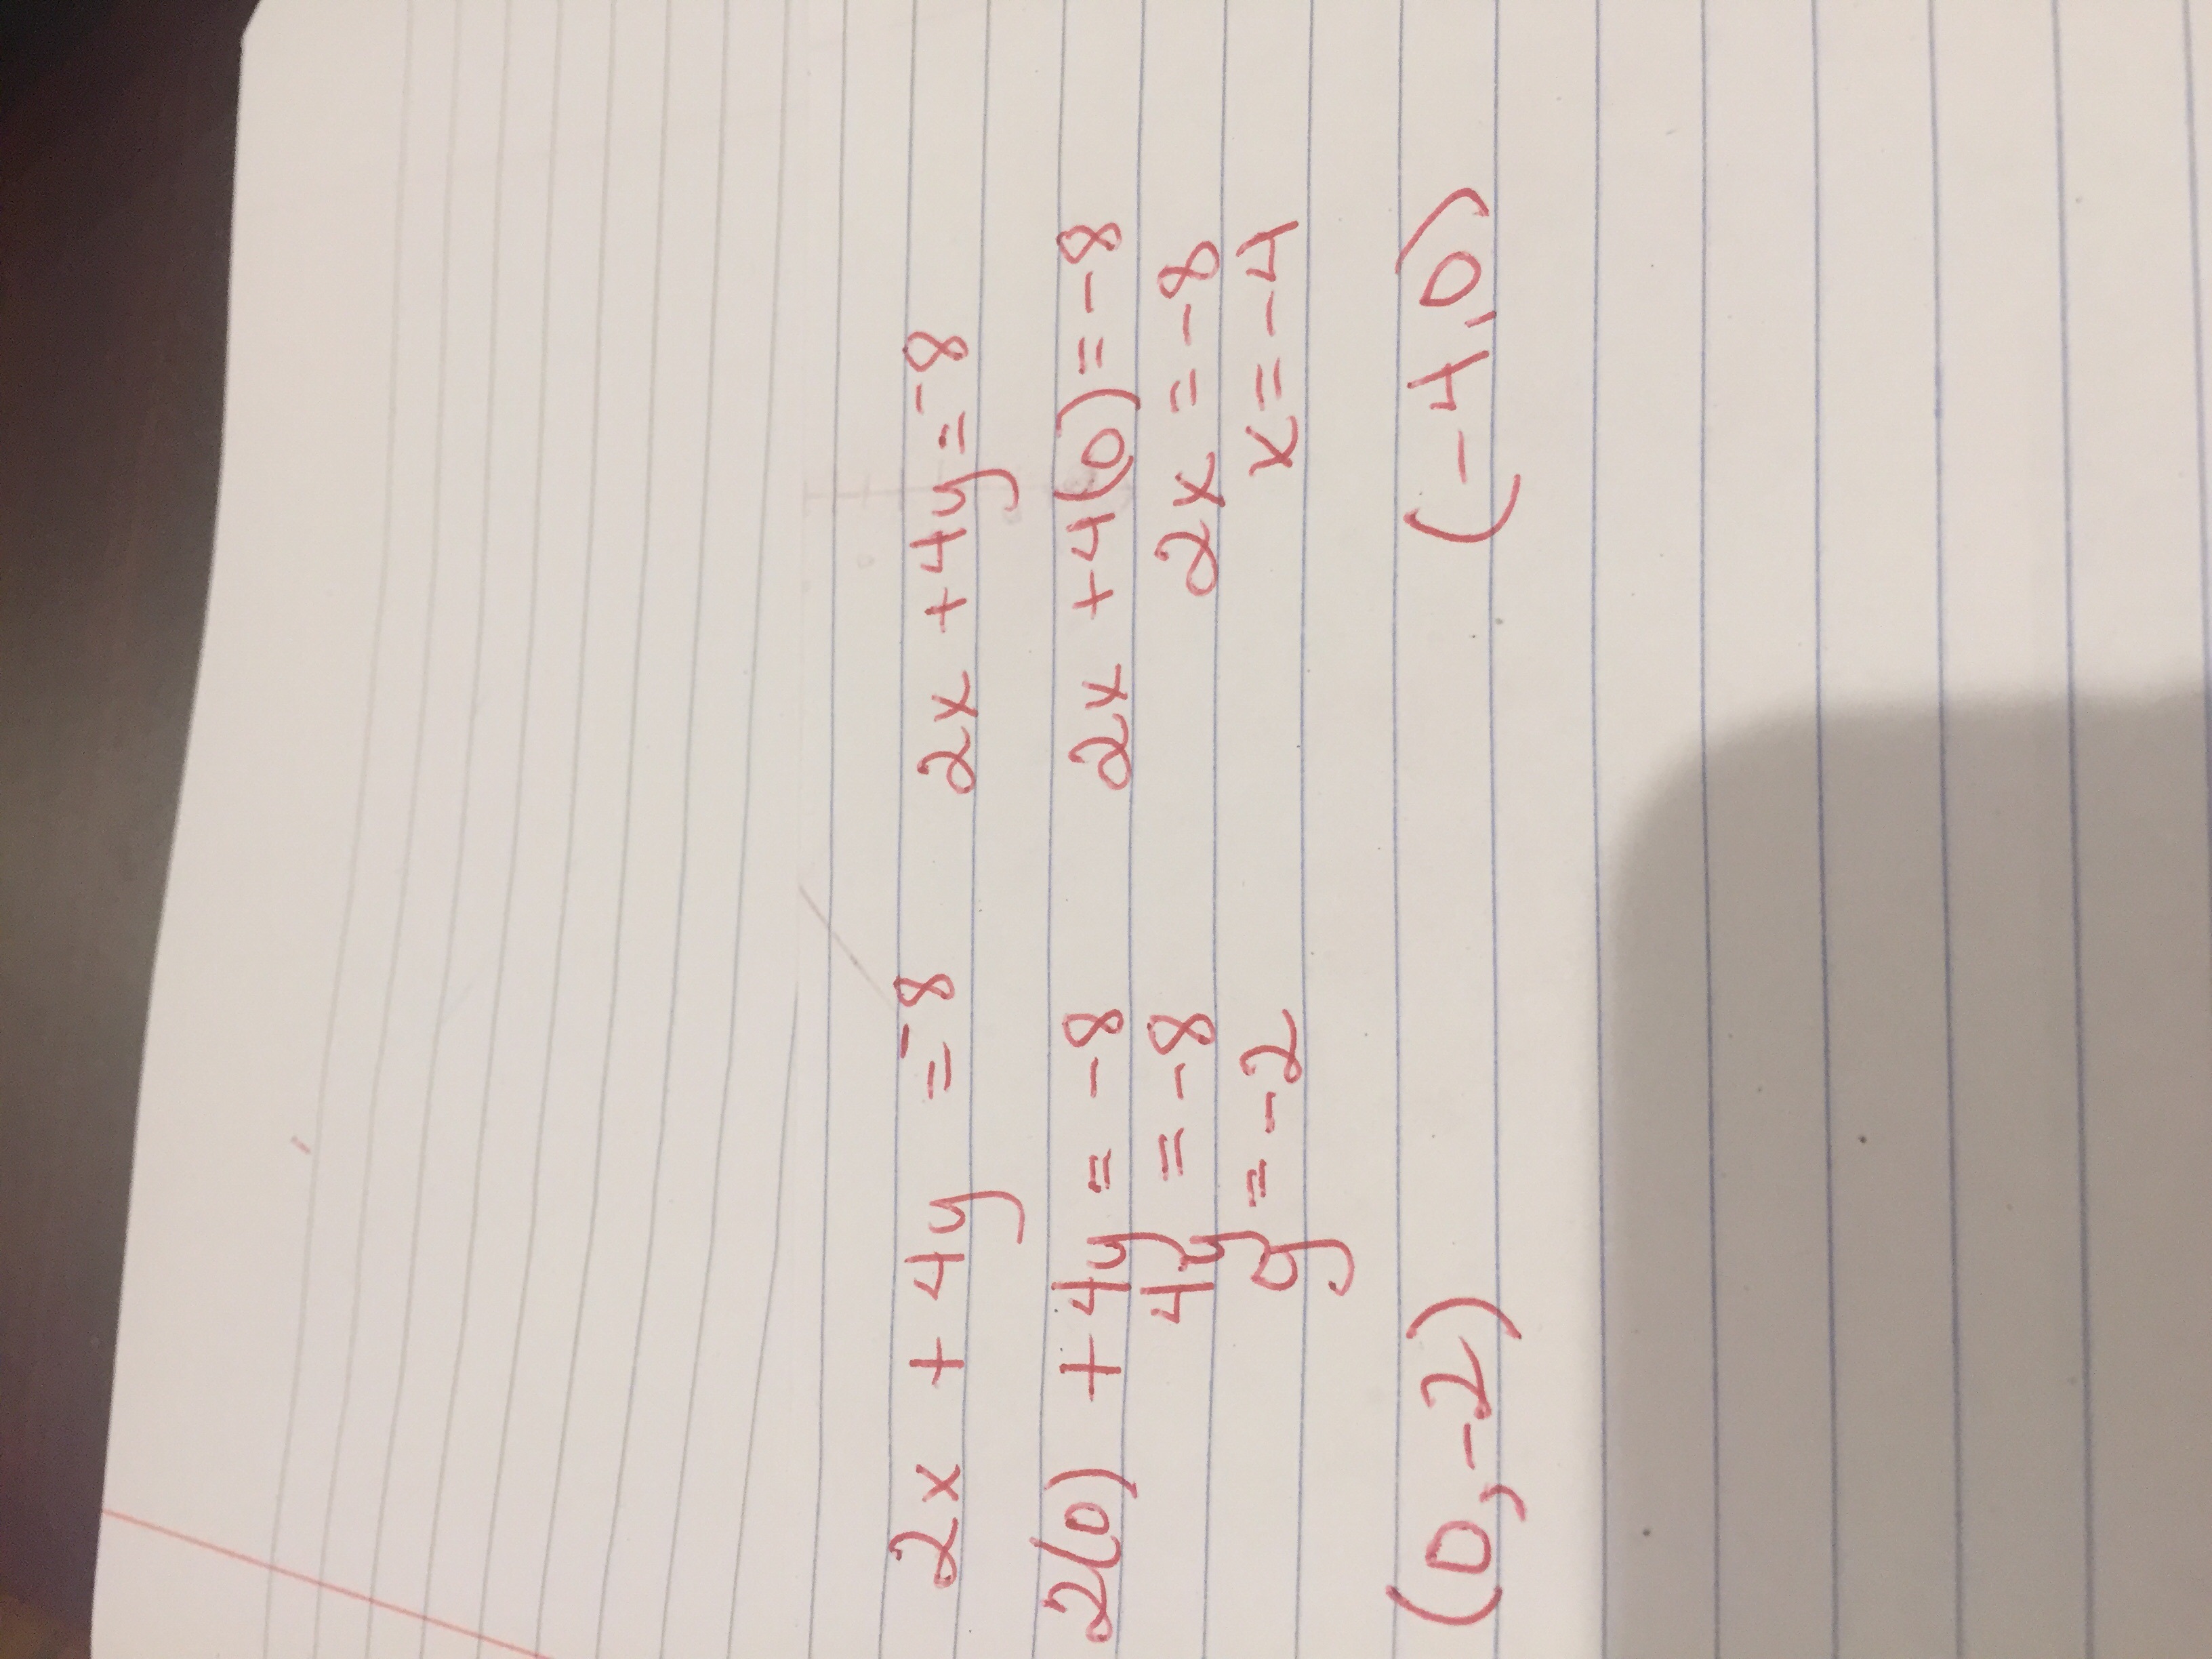 2x + 4y = -8 2x + 4y = -8
2(0) + 4y = -8 2x + 4(0) = -8
4y = -8 2x = -8
y = -2 x = -4
(0, -2) (-4, 0)